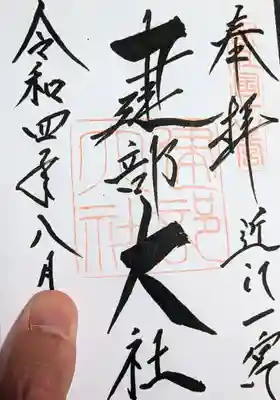 奉拝 近江一宮
建部大社
令和四年八月
建部大社